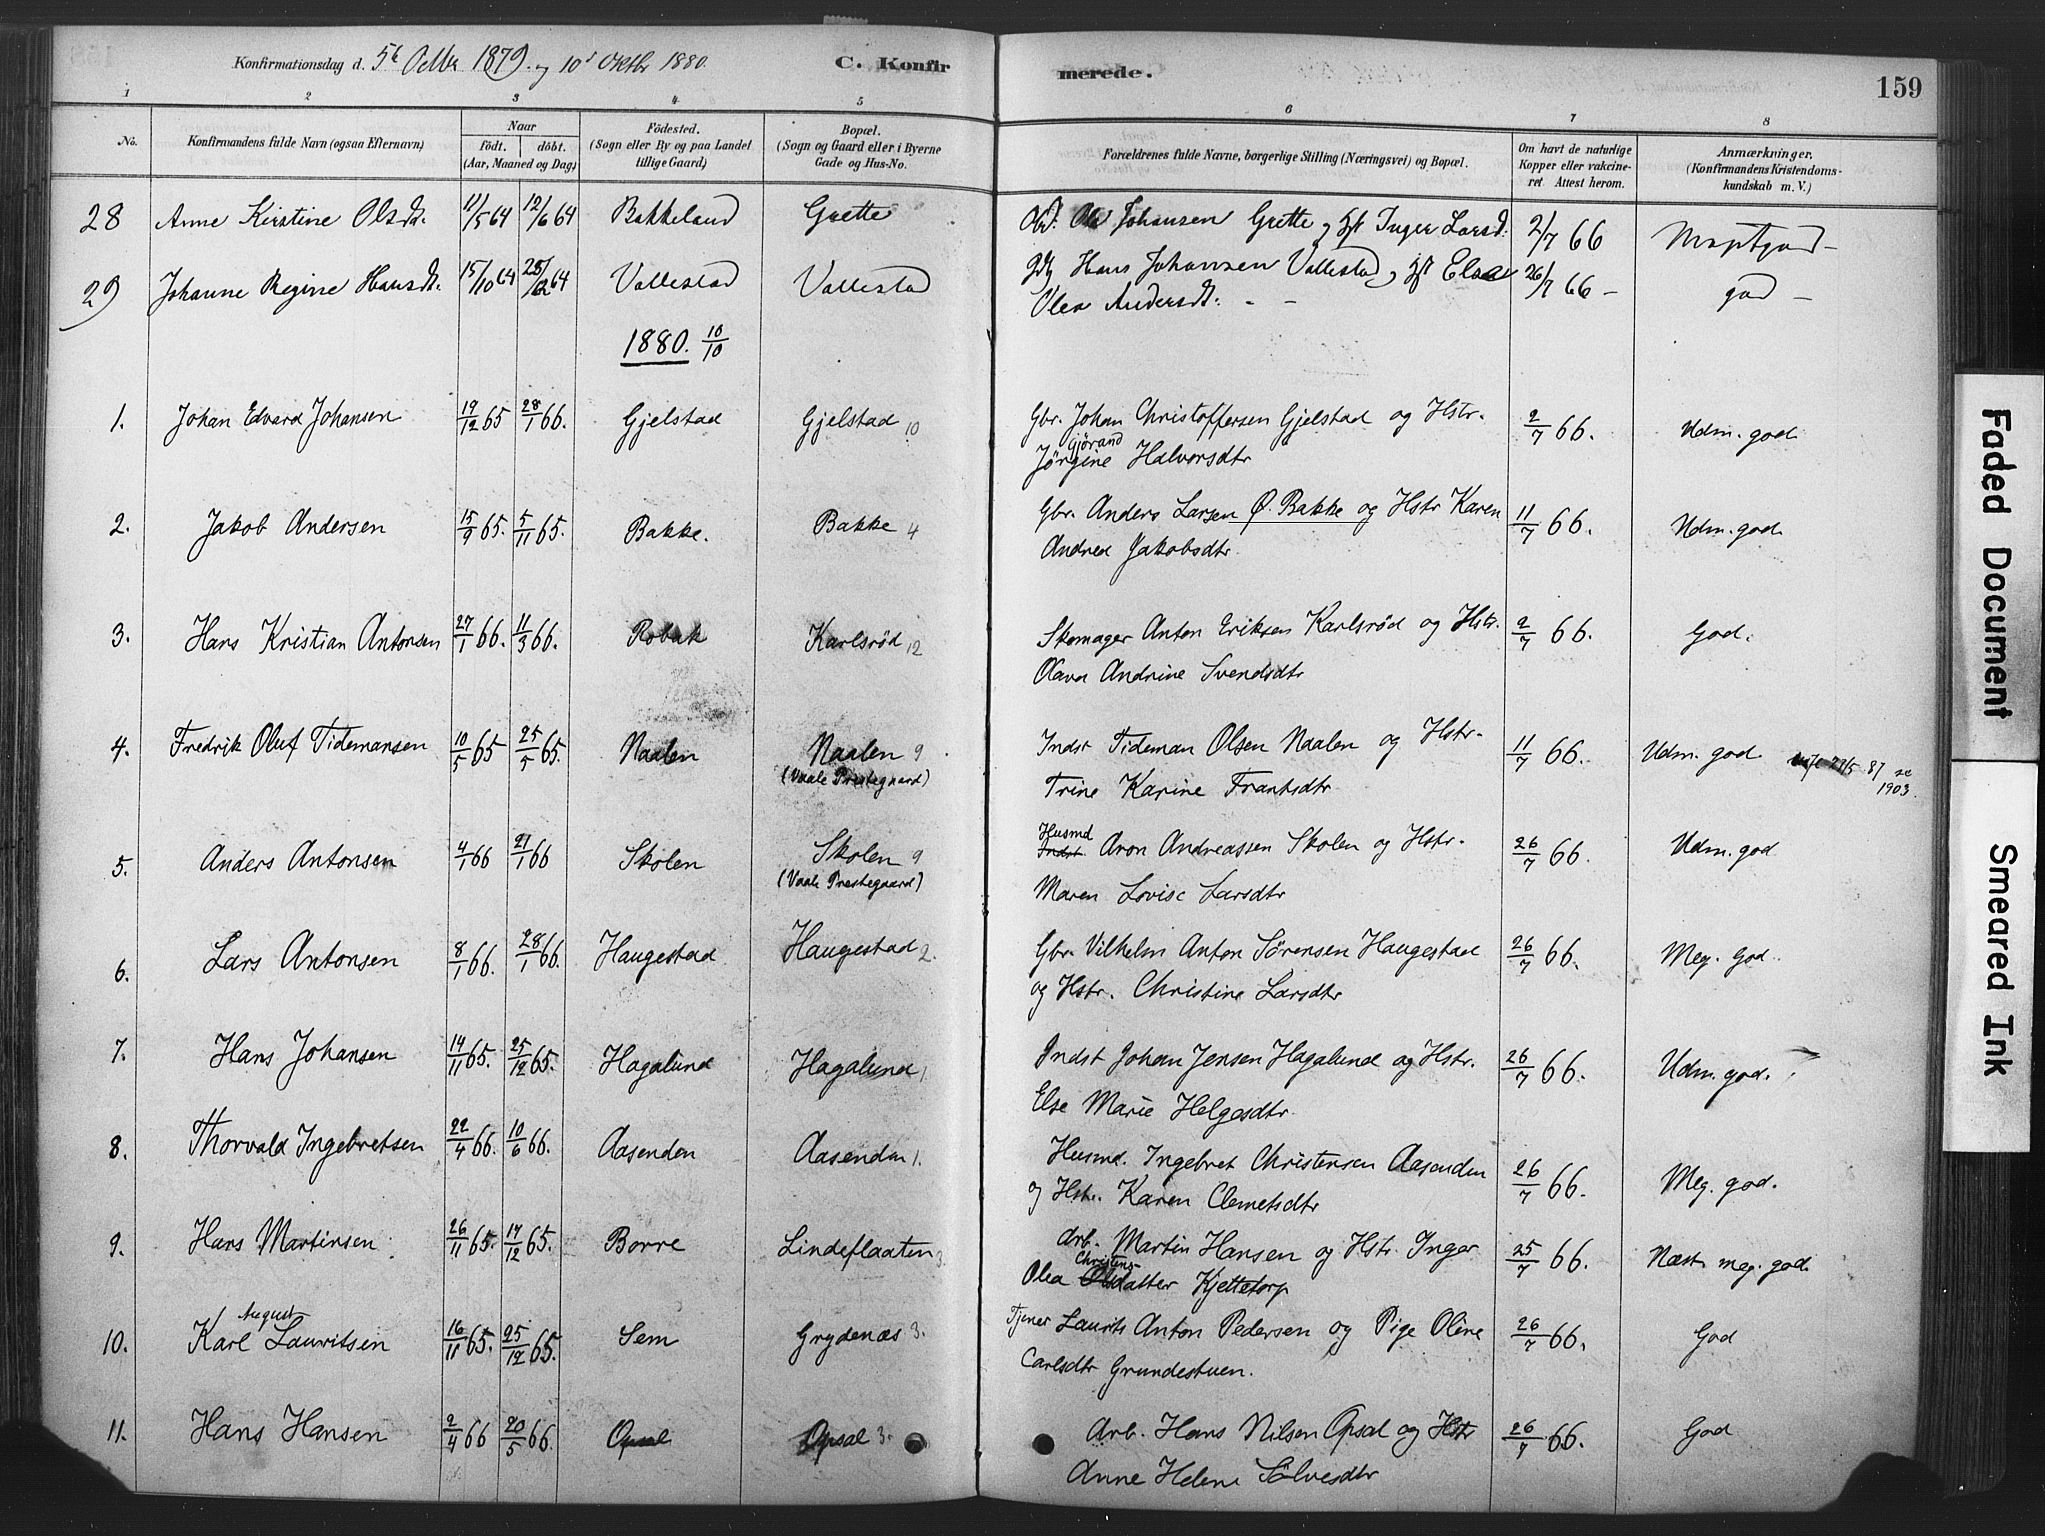 Konfirmationsdag d. 5te Octbr 1879. og 10d Oktbr 1880.
C. Konfirmerede.
159
1 2 3 4 5 6 7 8
No.
Konfirmandens fulde Navn (ogsaa Efternavn)
Naar
födt. döbt.
(Aar, Maaned og Dag)
Födested.
(Sogn eller By og paa Landet
tillige Gaard)
Bopæl.
(Sogn og Gaard eller i Byerne
Gade og Hus-No.
Forældrenes fulde Navne, borgerlige Stilling (Næringsvei) og Bopæl.
Om havt de naturlige
Kopper eller vakcine-
ret Attest herom.
Anmærkninger.
(Konfirmandens Kristendoms-
kundskab m. V.)
28 Anne Kirstine Olsdt. 11/5 64 12/6 64 Bakkeland Grette Ole Johansen Grette og Inger Larsd. 2/7 66
29 Johanne Regine Hansdt. 15/10 64 64 Vallestad Vallestad Hans Johansen Vallestad og 26/7 66 - god -
Olea Andersdt. - -
1880. 10/10
1. Johan Edvard Johansen 19/12 65 28/1 66. Gjelstad Gjelstad 10 Gbr. Johan Christoffersen Gjelstad og Hstr. 2/7 66. Udm. god.
Gjörand
Jørgine Halvorsdtr
2. Jakob Andersen 15/9 65. 5/11 65. Bakke. Bakke 4 Gbr. Anders Larsen Ø. Bakke og Hstr Karen 11/7 66. Udm. god.
Andrea Jakobsdtr.
3. Hans Kristian Antonsen 27/1 66. 11/3 66. Robæk Karlsrød 12 Skomager Anton Eriksen Karlsrød og Hstr. 2/7 66. God.
Olava Andrine Svendsdtr
4. Fredrik Oluf Tidemansen 10/5 65 25/5 65. Naalen Naalen 9 Indst Tideman Olsen Naalen og Hstr. 11/7 66. Udm. god. 29/5 87 se
(Vaale Prestegaard) 1903.
Trine Karine Frantsdtr
5. Anders Antonsen 4/1 66 21/1 66 Skolen Skolen 9 Husmd Indst Aron Andreassen Skolen og Hstr. 26/7 66. Udm. god
(Vaale Prestegaard)
Maren Lovise Larsdtr
6. Lars Antonsen 8/1 66. 28/1 66. Haugestad Haugestad 2. Gbr. Vilhelm Anton Sörensen Haugestad 26/7 66. Meg. god.
og Hstr. Christine Larsdtr
7. Hans Johansen 14/11 65. 25/12 65. Hagalund Hagalund 1. Indst Johan Jensen Hagalund og Hstr. 26/7 66. Udm. god.
Else Marie Helgesdtr.
8. Thorvald Ingebretsen 22/4 66. 10/6 66. Aasenden Aasenden 1. Husmd. Ingebret Christensen Aasenden 26/7 66. Meg. god.
og Hstr. Karen Clemetsdtr
9. Hans Martinsen 26/11 65. 17/12 65. Borre Lindeflaaten 3. Arb. Martin Hansen og Hstr. Inger 25/7 66. Næst meg. god.
Christens
Olea Olsdatter Kjettetorp
August
10. Karl Lauritsen 16/11 65. 25/12 65. Sem Grydenæs 3. Tjener Laurits Anton Pedersen og Pige Oline 26/7 66. God
Carlsdtr Grundestuen.
11. Hans Hansen 2/4 66 20/5 66. Opsal Opsal 3. Arb. Hans Nilsen Opsal og Hstr 26/7 66. God
Anne Helene Sølvesdtr
Faded Document
Smeared Ink